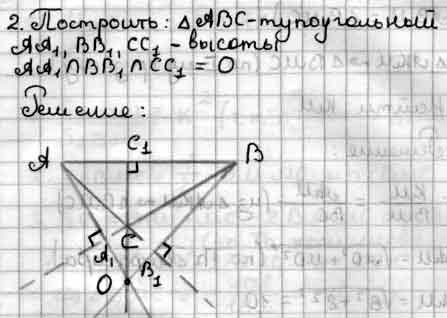 2. Построить: △ABC-тупоугольный
AA₁, BB₁, CC₁ - высоты
AA₁ ∩ BB₁ ∩ CC₁ = O
Решение:
C₁
A B
C
A₁ B₁
O